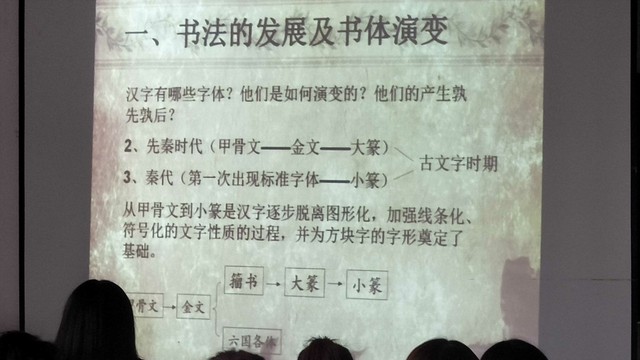 一、书法的发展及书体演变
汉字有哪些字体？他们是如何演变的？他们的产生孰
先孰后？
2、先秦时代（甲骨文——金文——大篆）
古文字时期
3、秦代（第一次出现标准字体——小篆）
从甲骨文到小篆是汉字逐步脱离图形化，加强线条化、
符号化的文字性质的过程，并为方块字的字形奠定了
基础。
籀书→大篆→小篆
骨文→金文
六国各体